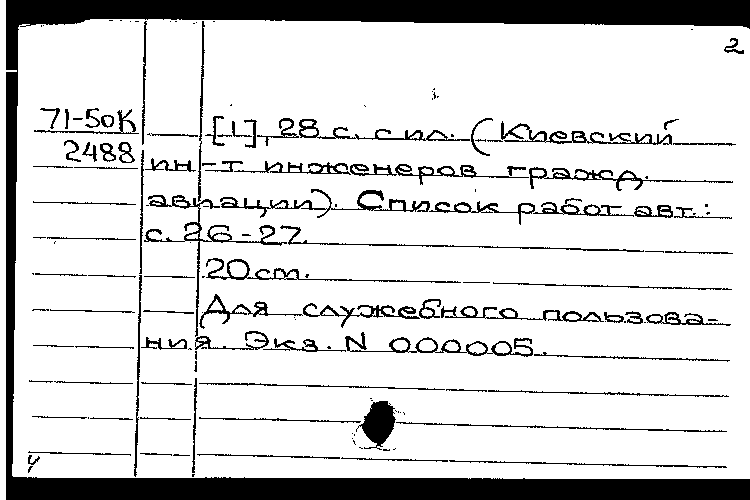 2
71-50К [1], 28 с. с ил. (Киевский
2488 ин-т инженеров гражд.
авиации). Список работ авт.:
с. 26-27.
20 cm.
Для служебного пользова-
ния. Экз. N 000005.